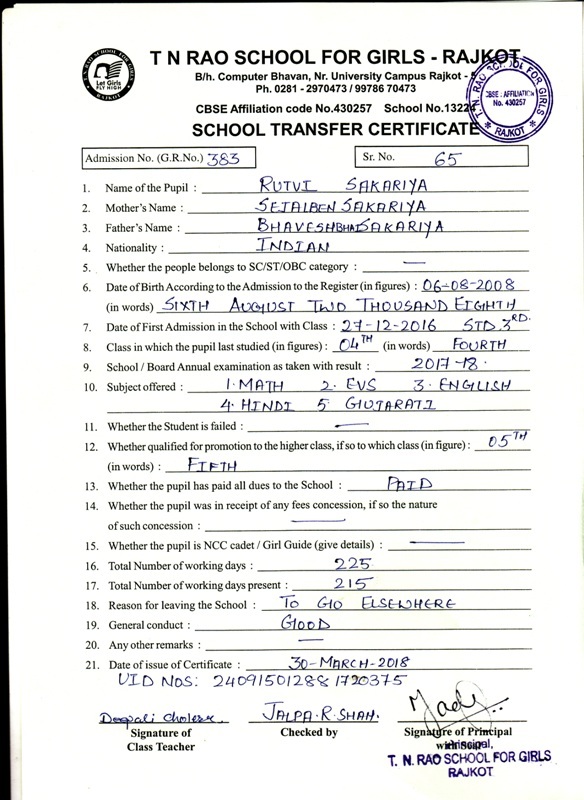 T N RAO SCHOOL FOR GIRLS - RAJKOT
Let Girls
FLY HIGH
B/h. Computer Bhavan, Nr. University Campus Rajkot -
Ph. 0281 - 2970473 / 99786 70473
CBSE Affiliation code No.430257 School No.1322
T. N. RAO SCHOOL FOR GIRLS
CBSE : AFFILIATION
No. 430257
* RAJKOT *
SCHOOL TRANSFER CERTIFICATE
Admission No. (G.R.No.) 383
Sr. No. 65
1. Name of the Pupil : RUTVI SAKARIYA
2. Mother's Name : SEJALBEN SAKARIYA
3. Father's Name : BHAVESHBHAI SAKARIYA
4. Nationality : INDIAN
5. Whether the people belongs to SC/ST/OBC category : —
6. Date of Birth According to the Admission to the Register (in figures) : 06-08-2008
(in words) SIXTH AUGUST TWO THOUSAND EIGHTH
7. Date of First Admission in the School with Class : 27-12-2016 STD.3RD.
8. Class in which the pupil last studied (in figures) : 04TH (in words) FOURTH
9. School / Board Annual examination as taken with result : 2017-18.
10. Subject offered : 1. MATH 2. EVS 3. ENGLISH
4. HINDI 5. GUJARATI
11. Whether the Student is failed : —
12. Whether qualified for promotion to the higher class, if so to which class (in figure) : 05TH
(in words) : FIFTH
13. Whether the pupil has paid all dues to the School : PAID
14. Whether the pupil was in receipt of any fees concession, if so the nature
of such concession : —
15. Whether the pupil is NCC cadet / Girl Guide (give details) : —
16. Total Number of working days : 225
17. Total Number of working days present : 215
18. Reason for leaving the School : TO GO ELSEWHERE
19. General conduct : GOOD
20. Any other remarks : —
21. Date of issue of Certificate : 30-MARCH-2018
UID NOS: 240915012881720375
Deepali JALPA.R.SHAH.
Signature of Class Teacher
Checked by
Signature of Principal
with
Principal,
T. N. RAO SCHOOL FOR GIRLS
RAJKOT